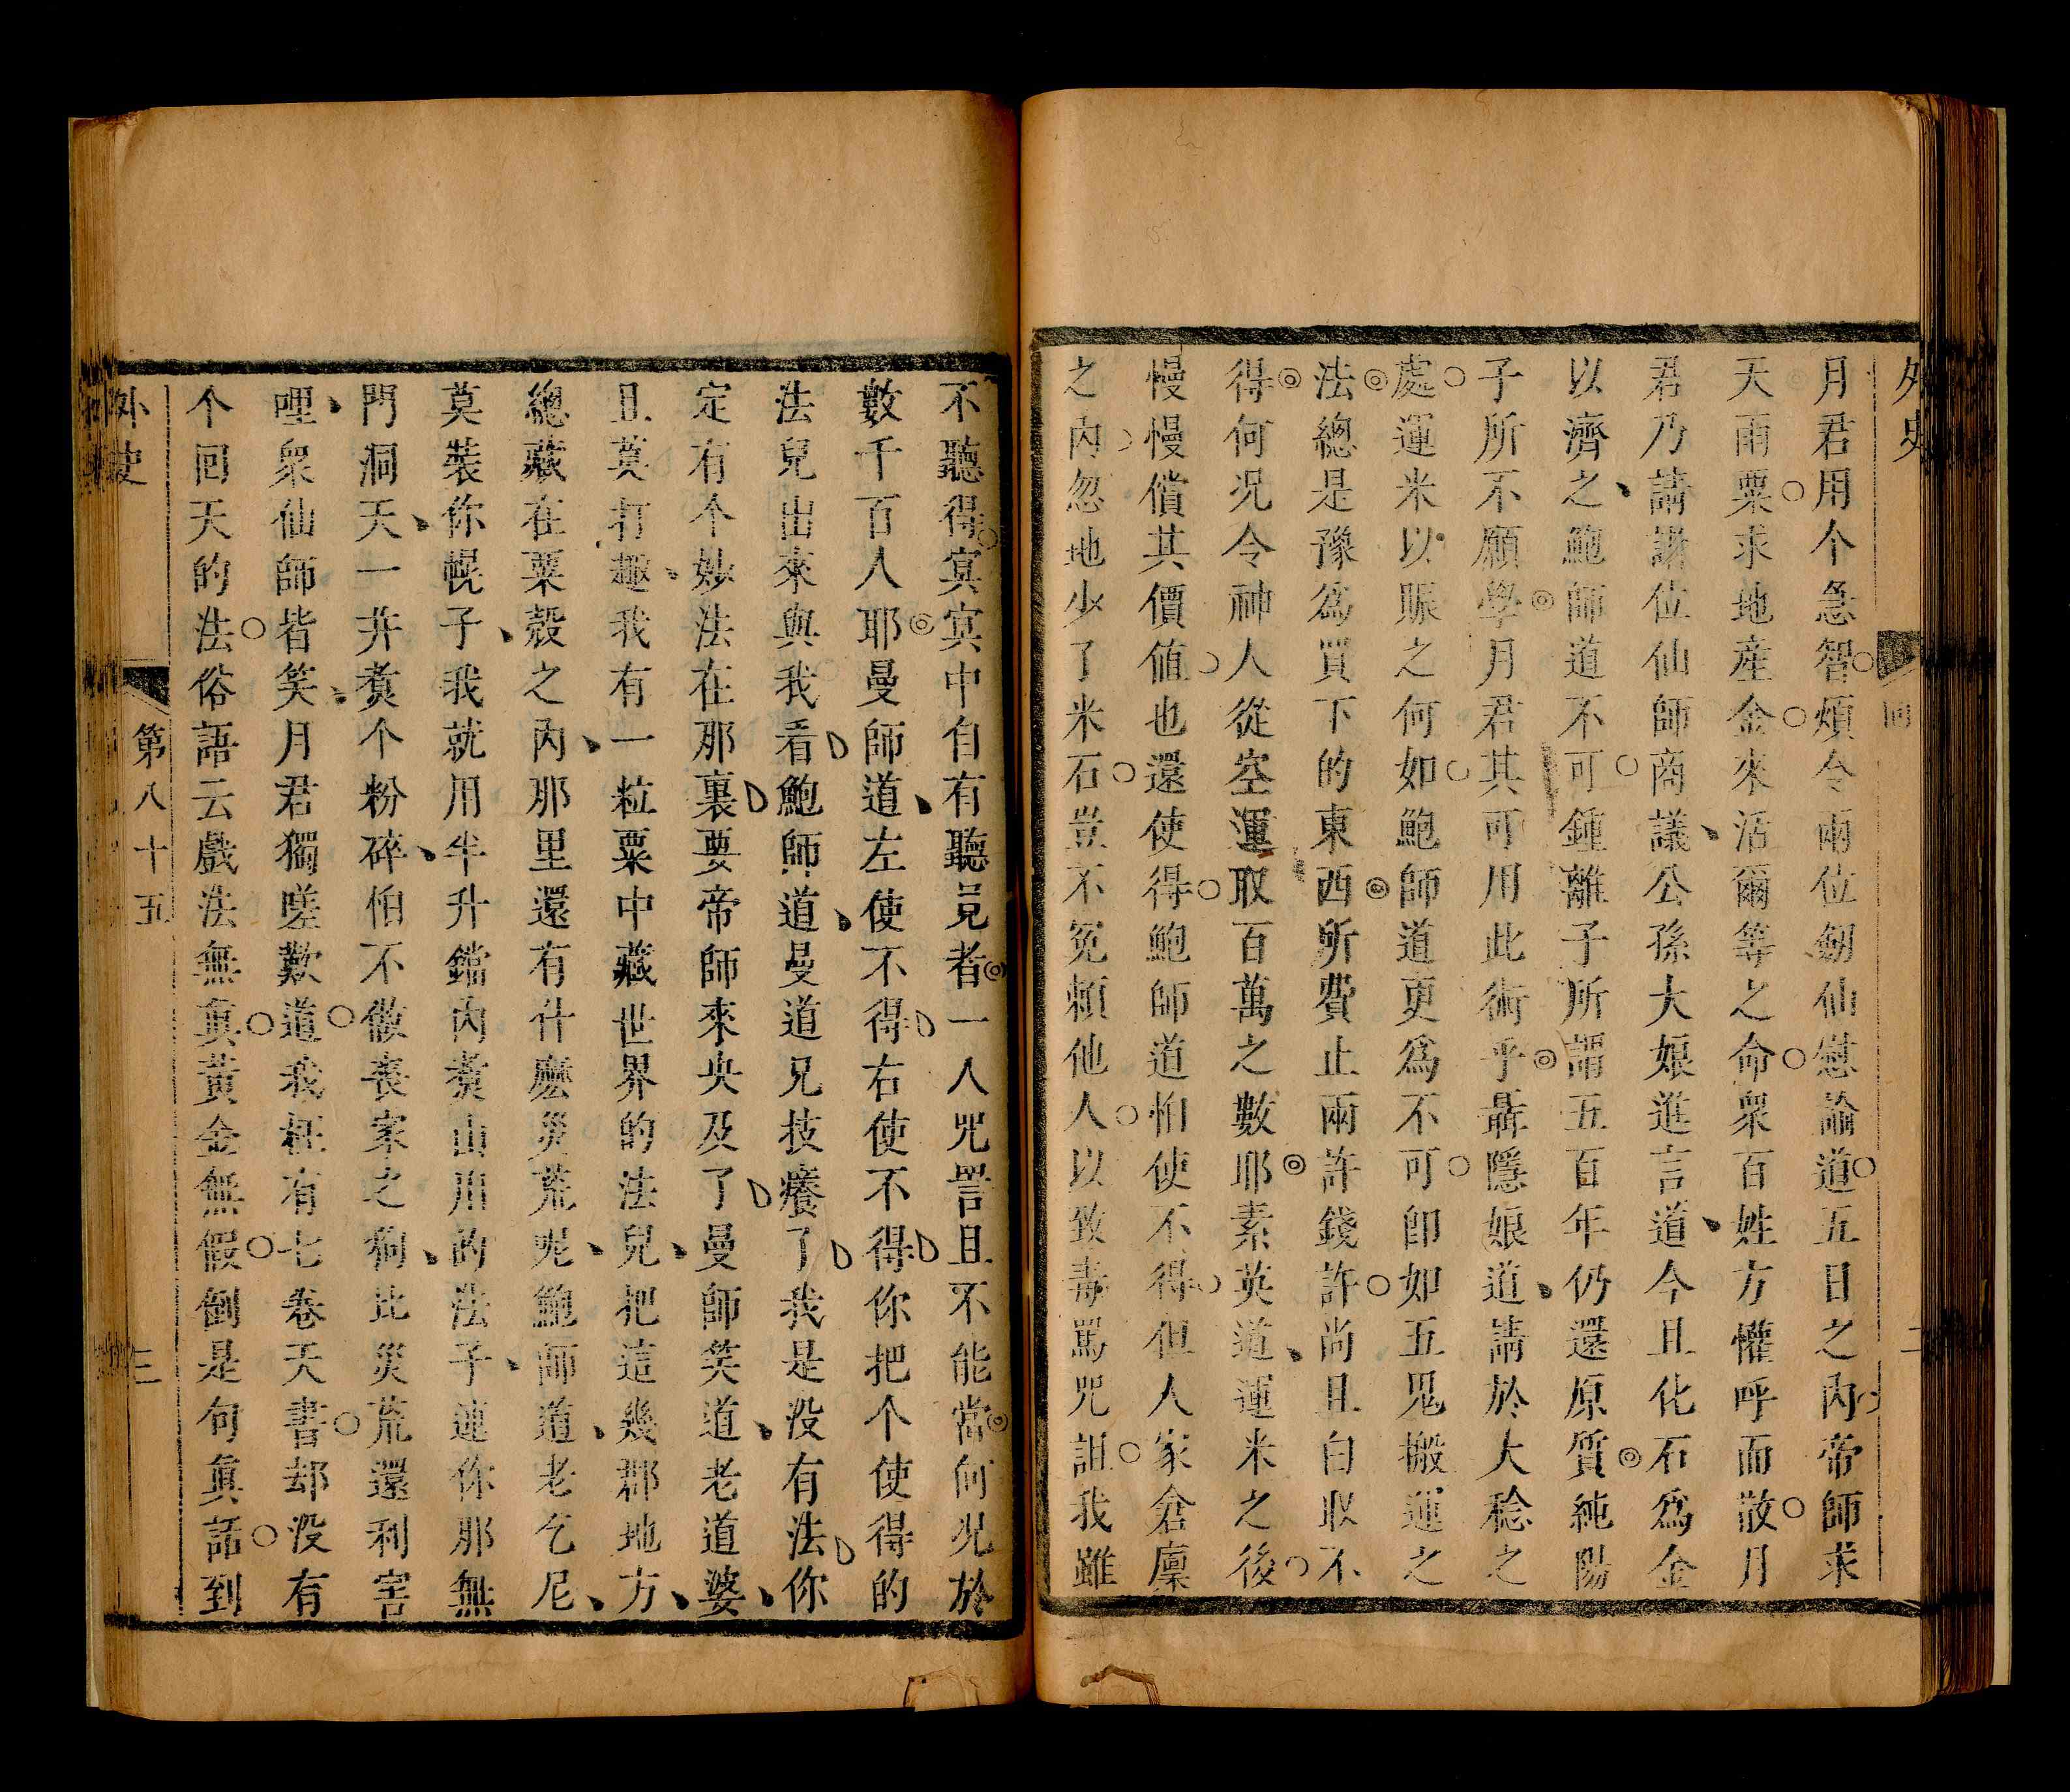 外史
回
二
月君用个急智煩令兩位劔仙慰論道五日之內帝師求
天雨粟求地產金來活爾等之命衆百姓方懽呼而散月
君乃請諸位仙師商議公孫大娘進言道今且化石爲金
以濟之鮑師道不可鍾離子所謂五百年仍還原質純陽
子所不願學月君其可用此術乎聶隱娘道請於大稔之
處運米以賑之何如鮑師道更爲不可卽如五鬼搬運之
法總是豫爲買下的東西所費止兩許錢許尚且白取不
得何况令神人從空運取百萬之數耶素英道運米之後
慢慢償其價值也還使得鮑師道怕使不得但人家倉廩
之內忽地少了米石豈不冤賴他人以致毒罵咒詛我雖
不聽得冥冥中自有聽見者一人咒詈且不能當何况於
數千百人耶曼師道左使不得右使不得你把个使得的
法兒出來與我看鮑師道曼道兄技癢了我是没有法你
定有个妙法在那裏要帝師來央及了曼師笑道老道婆
且莫打趣我有一粒粟中藏世界的法兒把這幾郡地方
總藏在粟殼之內那里還有什麽災荒呢鮑師道老乞尼
莫裝你幌子我就用半升鐺內煑山川的法子連你那無
門洞天一并煑个粉碎怕不做喪家之狗比災荒還利害
哩衆仙師皆笑月君獨嗟歎道我枉有七卷天書却没有
个回天的法俗語云戲法無真黃金無假倒是句真話到
外史
第八十五
三